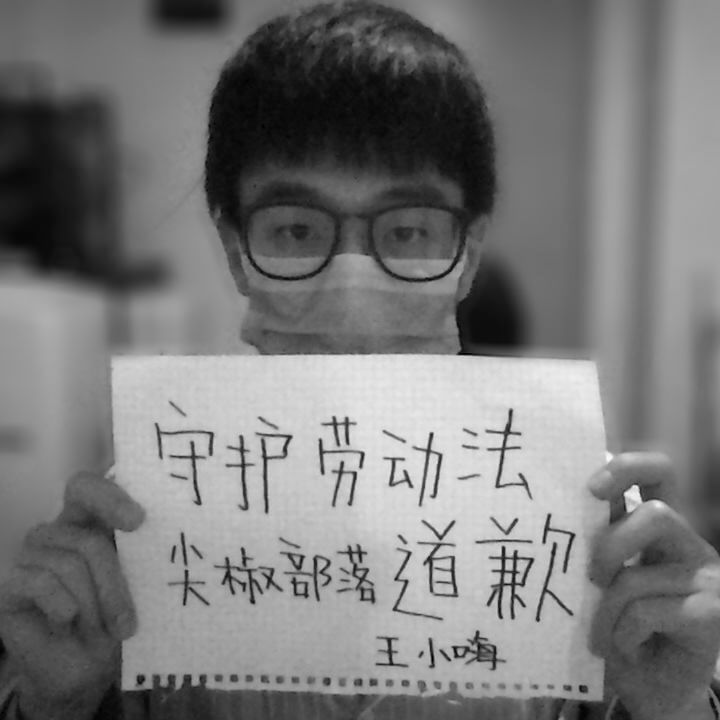 守护劳动法
尖椒部落道歉
王小嗨